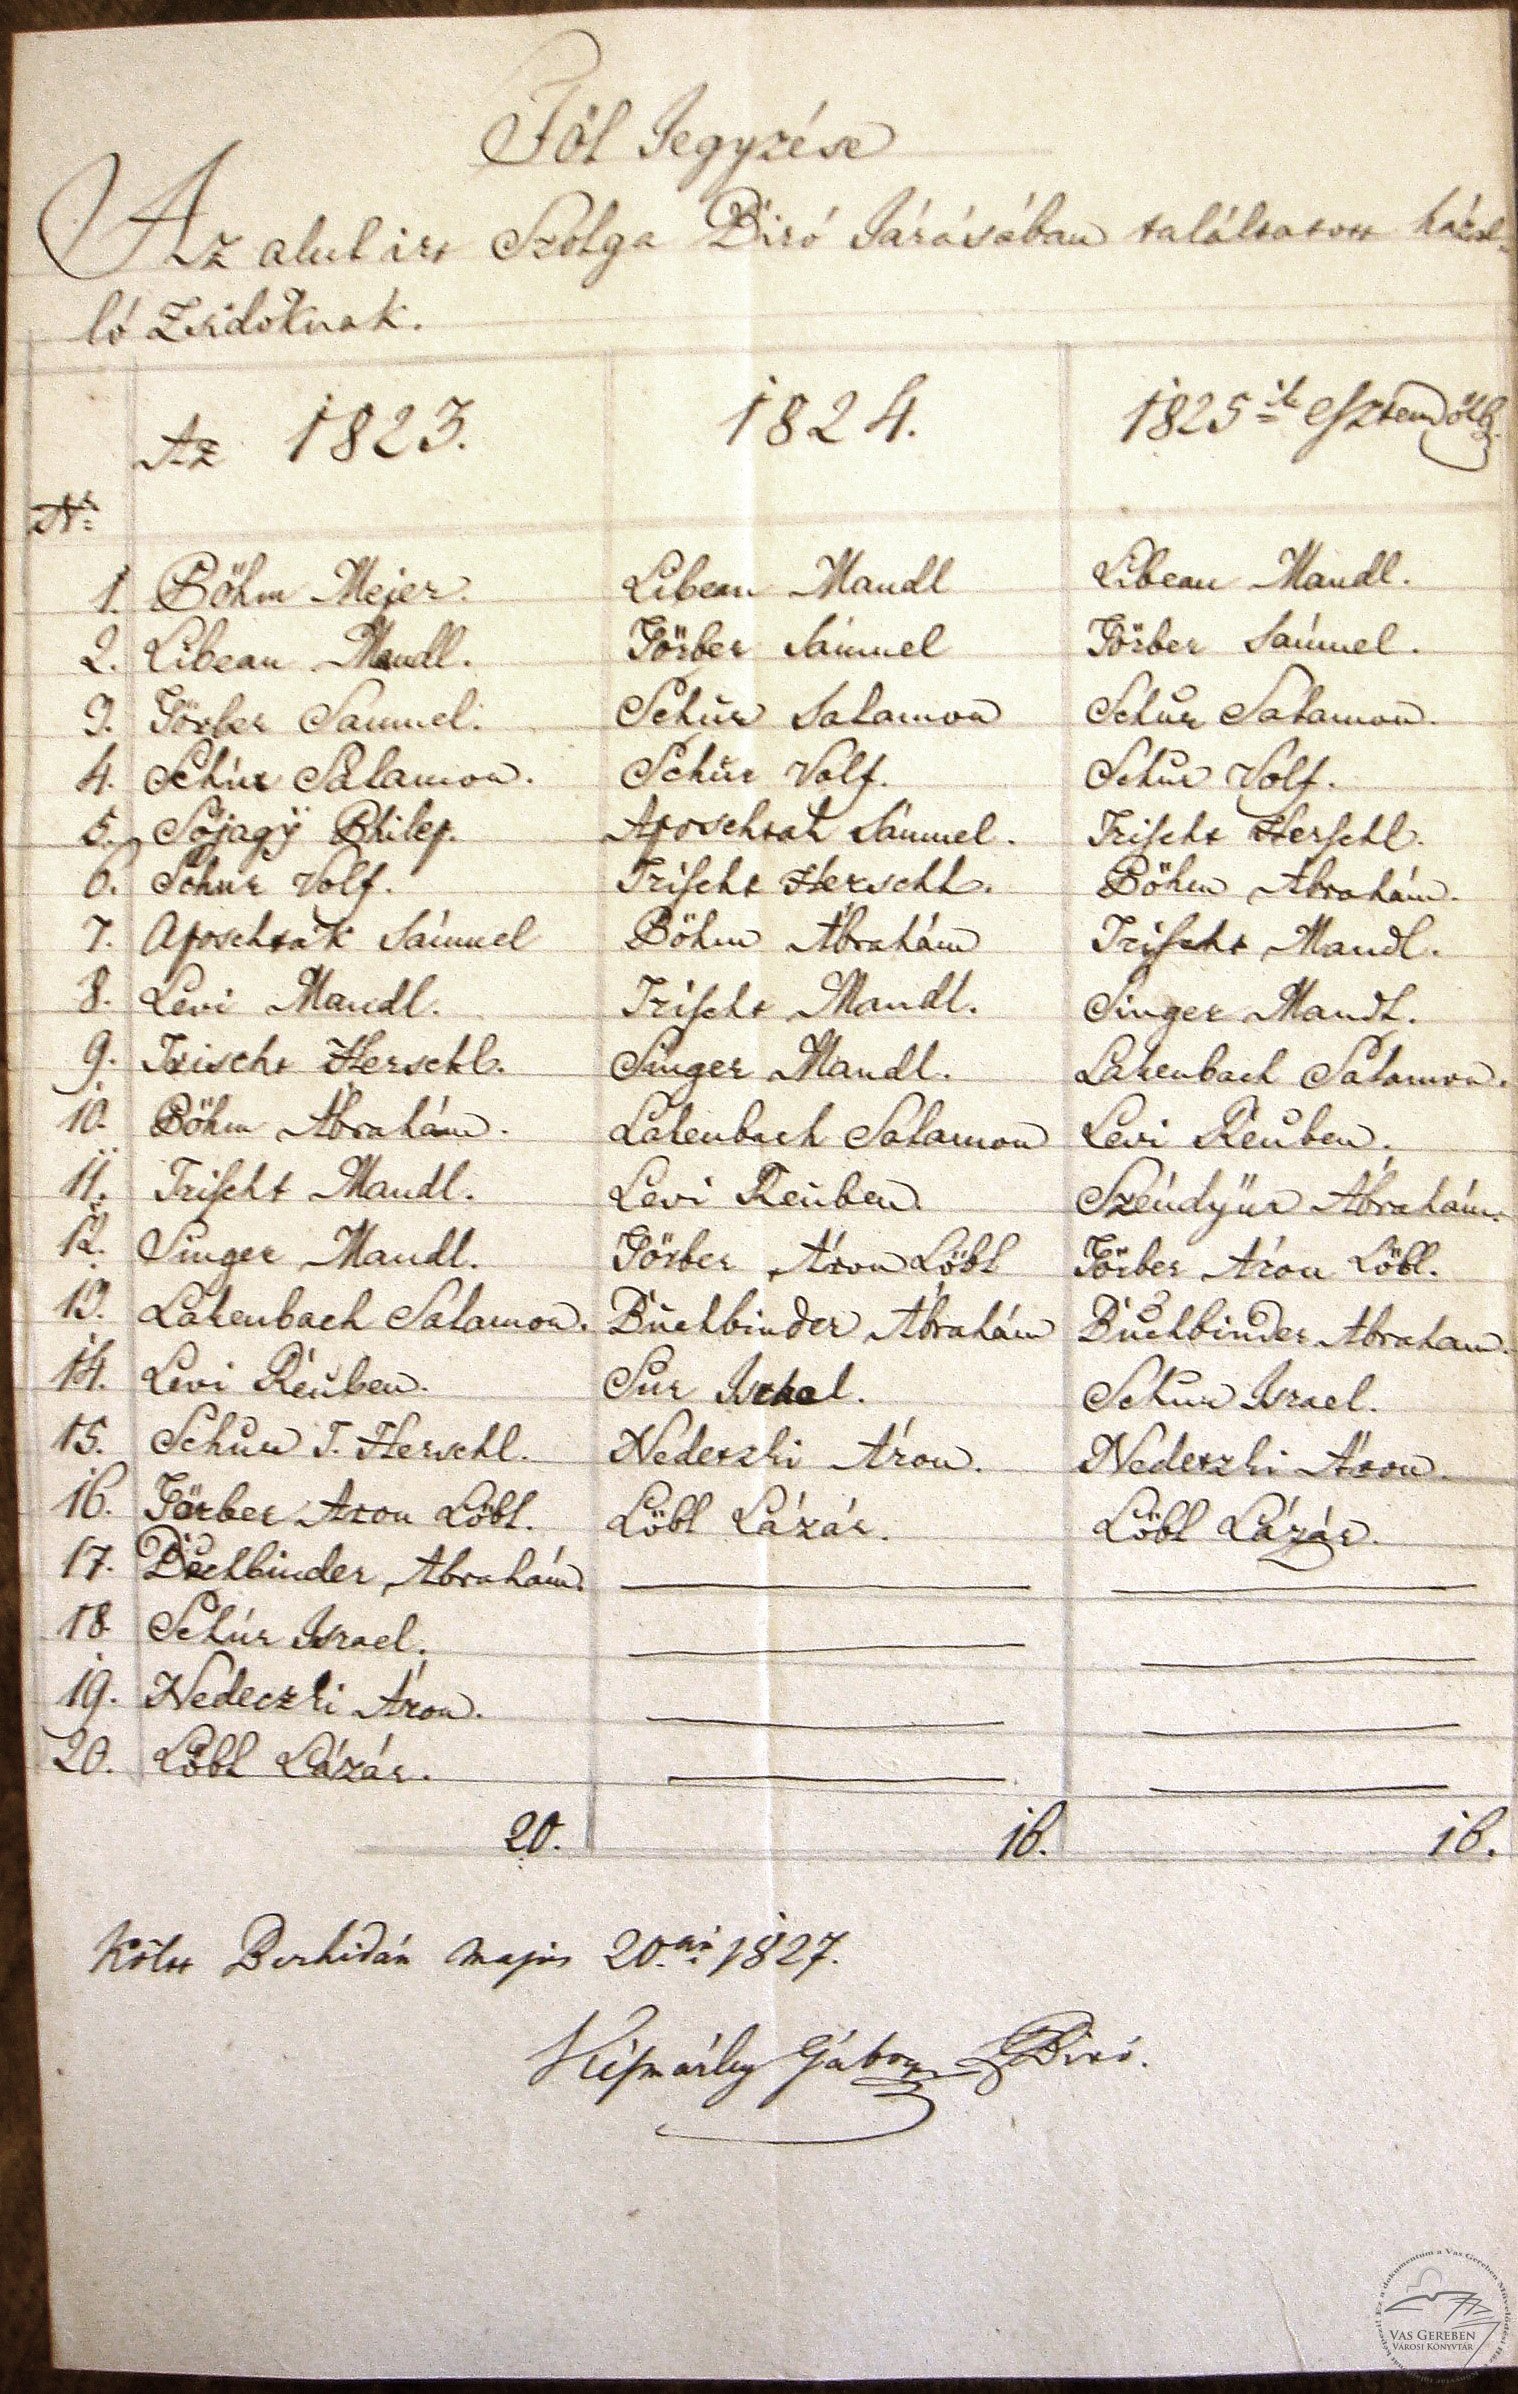 Föl Jegyzése
Az alul irt Szolga Biró Járásában találtatott házal-
ló Zsidóknak.
Az 1823. 1824. 1825ik esztendőkb.
Nr.
1. Böhm Mejer. Libeau Mandl Libeau Mandl.
2. Libeau Mandl. Förber Sámuel Förber Sámuel.
3. Förber Samuel. Schur Salamon Schur Salamon.
4. Schúr Salamon. Schur Volf. Schur Volf.
5. Sójagÿ Philep. Aposchtak Sámuel. Frischt Herschl.
6. Schur Volf. Frischt Herschl. Böhm Abrahám.
7. Aposchták Sámuel Böhm Ábrahám Frischt Mandl.
8. Levi Mandl. Frischt Mandl. Singer Mandl.
9. Frischt Herschl. Singer Mandl. Lakenbach Salamon.
10. Böhm Ábrahám. Lakenbach Salamon Levi Reuben.
11. Frischt Mandl. Levi Reuben. Ábrahám.
12. Singer Mandl. Förber Áron Löbl Förber Áron Löbl.
13. Lakenbach Salamon. Buchbinder Ábrahám Buchbinder Abraham.
14. Levi Reuben. Sur Israel. Schur Israel.
15. Schur J. Herschl. Nedeczki Áron. Nedeczki Áron.
16. Förber Aron Löbl. Löbl Lázár. Löbl Lázár.
17. Buchbinder Abrahám.
18. Schúr Israel.
19. Nedeczki Áron.
20. Löbl Lázár.
20. 16. 16.
Költt Berhidán Majus 20.án 1827.
Gábor Biró.
VAS GEREBEN
VÁROSI KÖNYVTÁR